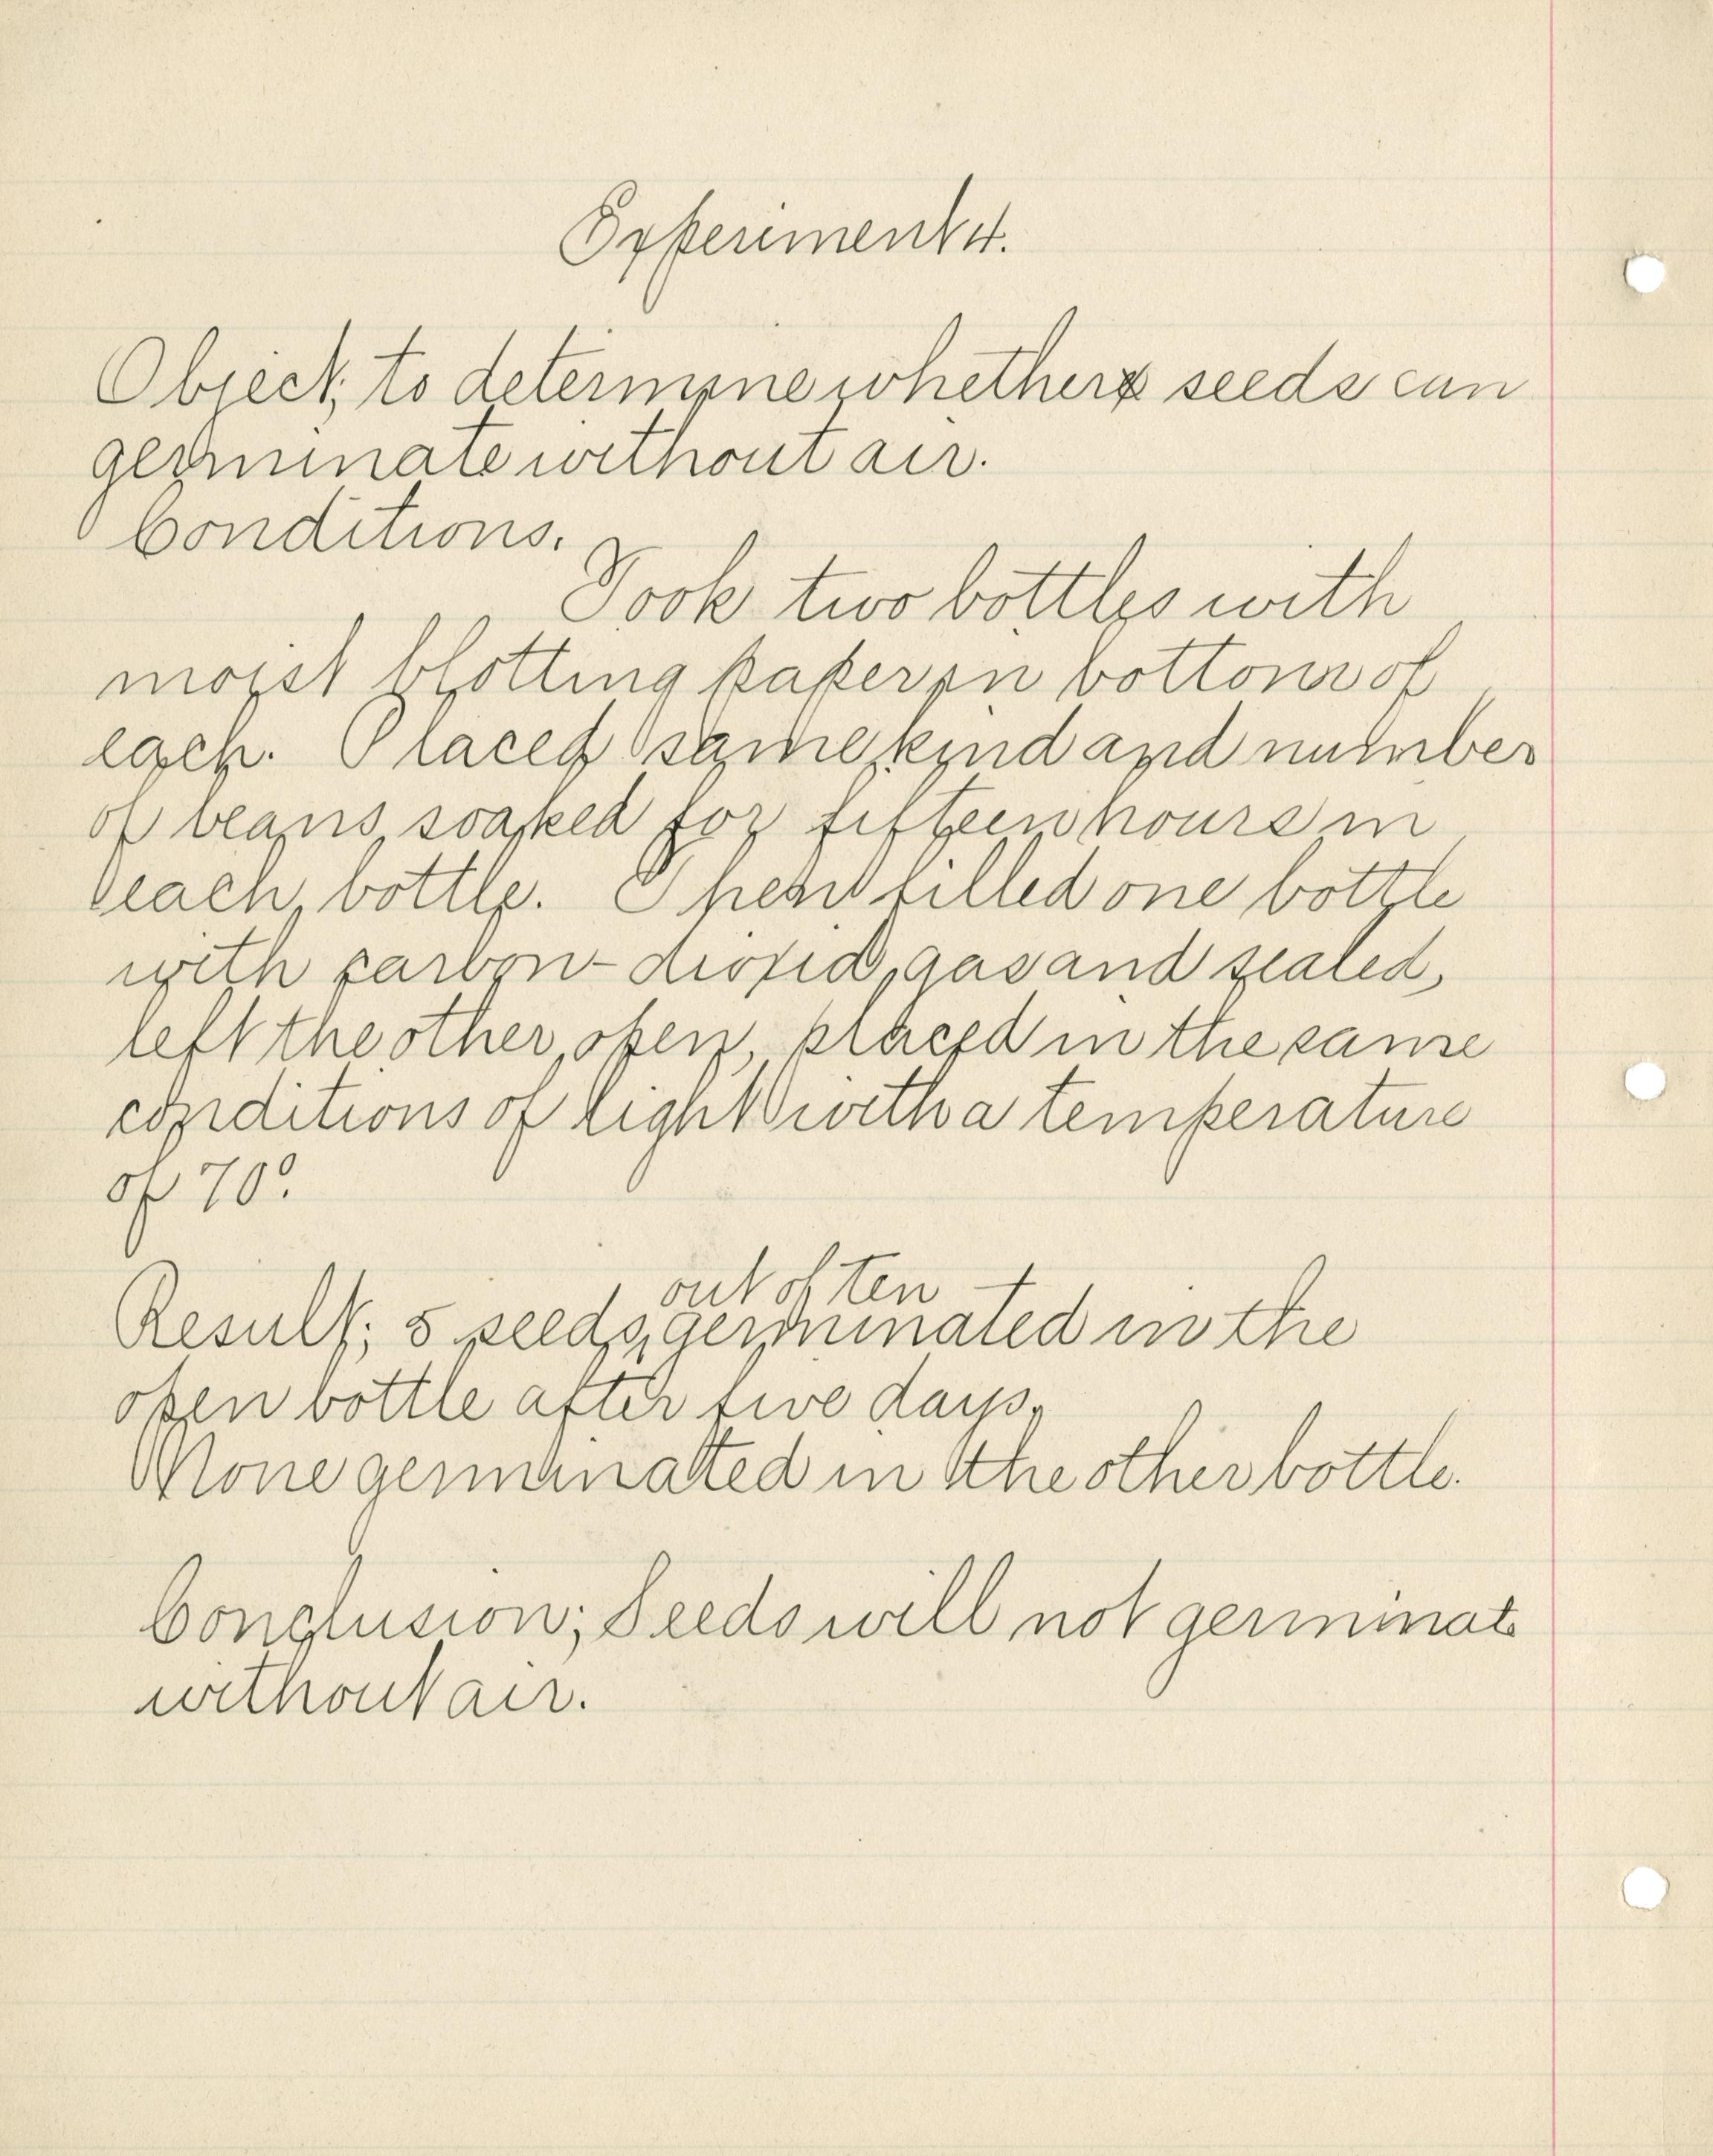 Experiment 4.
Object; to determine whether seeds can
germinate without air.
Conditions.
Took two bottles with
moist blotting paper in bottom of
each. Placed same kind and number
of beans soaked for fifteen hours in
each bottle. Then filled one bottle
with carbon-dioxid gas and sealed,
left the other open, placed in the same
conditions of light with a temperature
of 70°.
out of ten
Result; 5 seeds germinated in the
open bottle after five days.
None germinated in the other bottle.
Conclusion; Seeds will not germinate
without air.